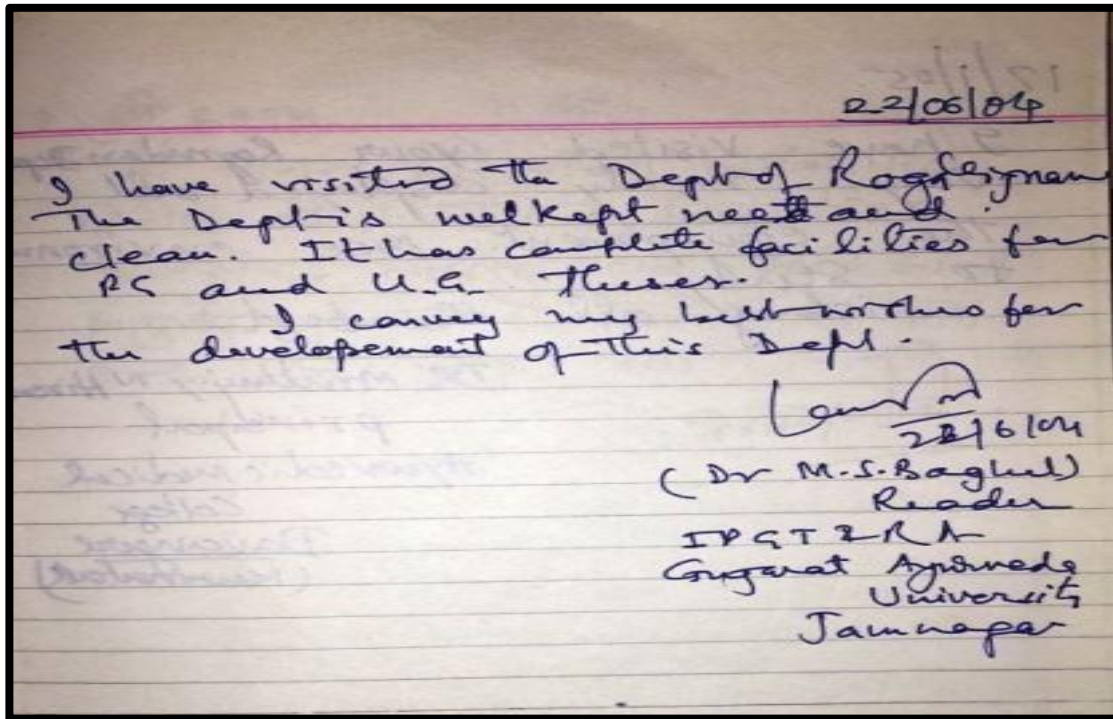 22/06/04
I have visited the Dept of Rogavignan
The Dept is welkept neat and
clean. It has complete facilities for
PG and U.G. Theses.
I convey my best wishes for
the developement of this Dept.
22/6/04
(Dr M.S. Baghel)
Reader
IPGT & RA
Gujarat Ayurveda
University
Jamnagar